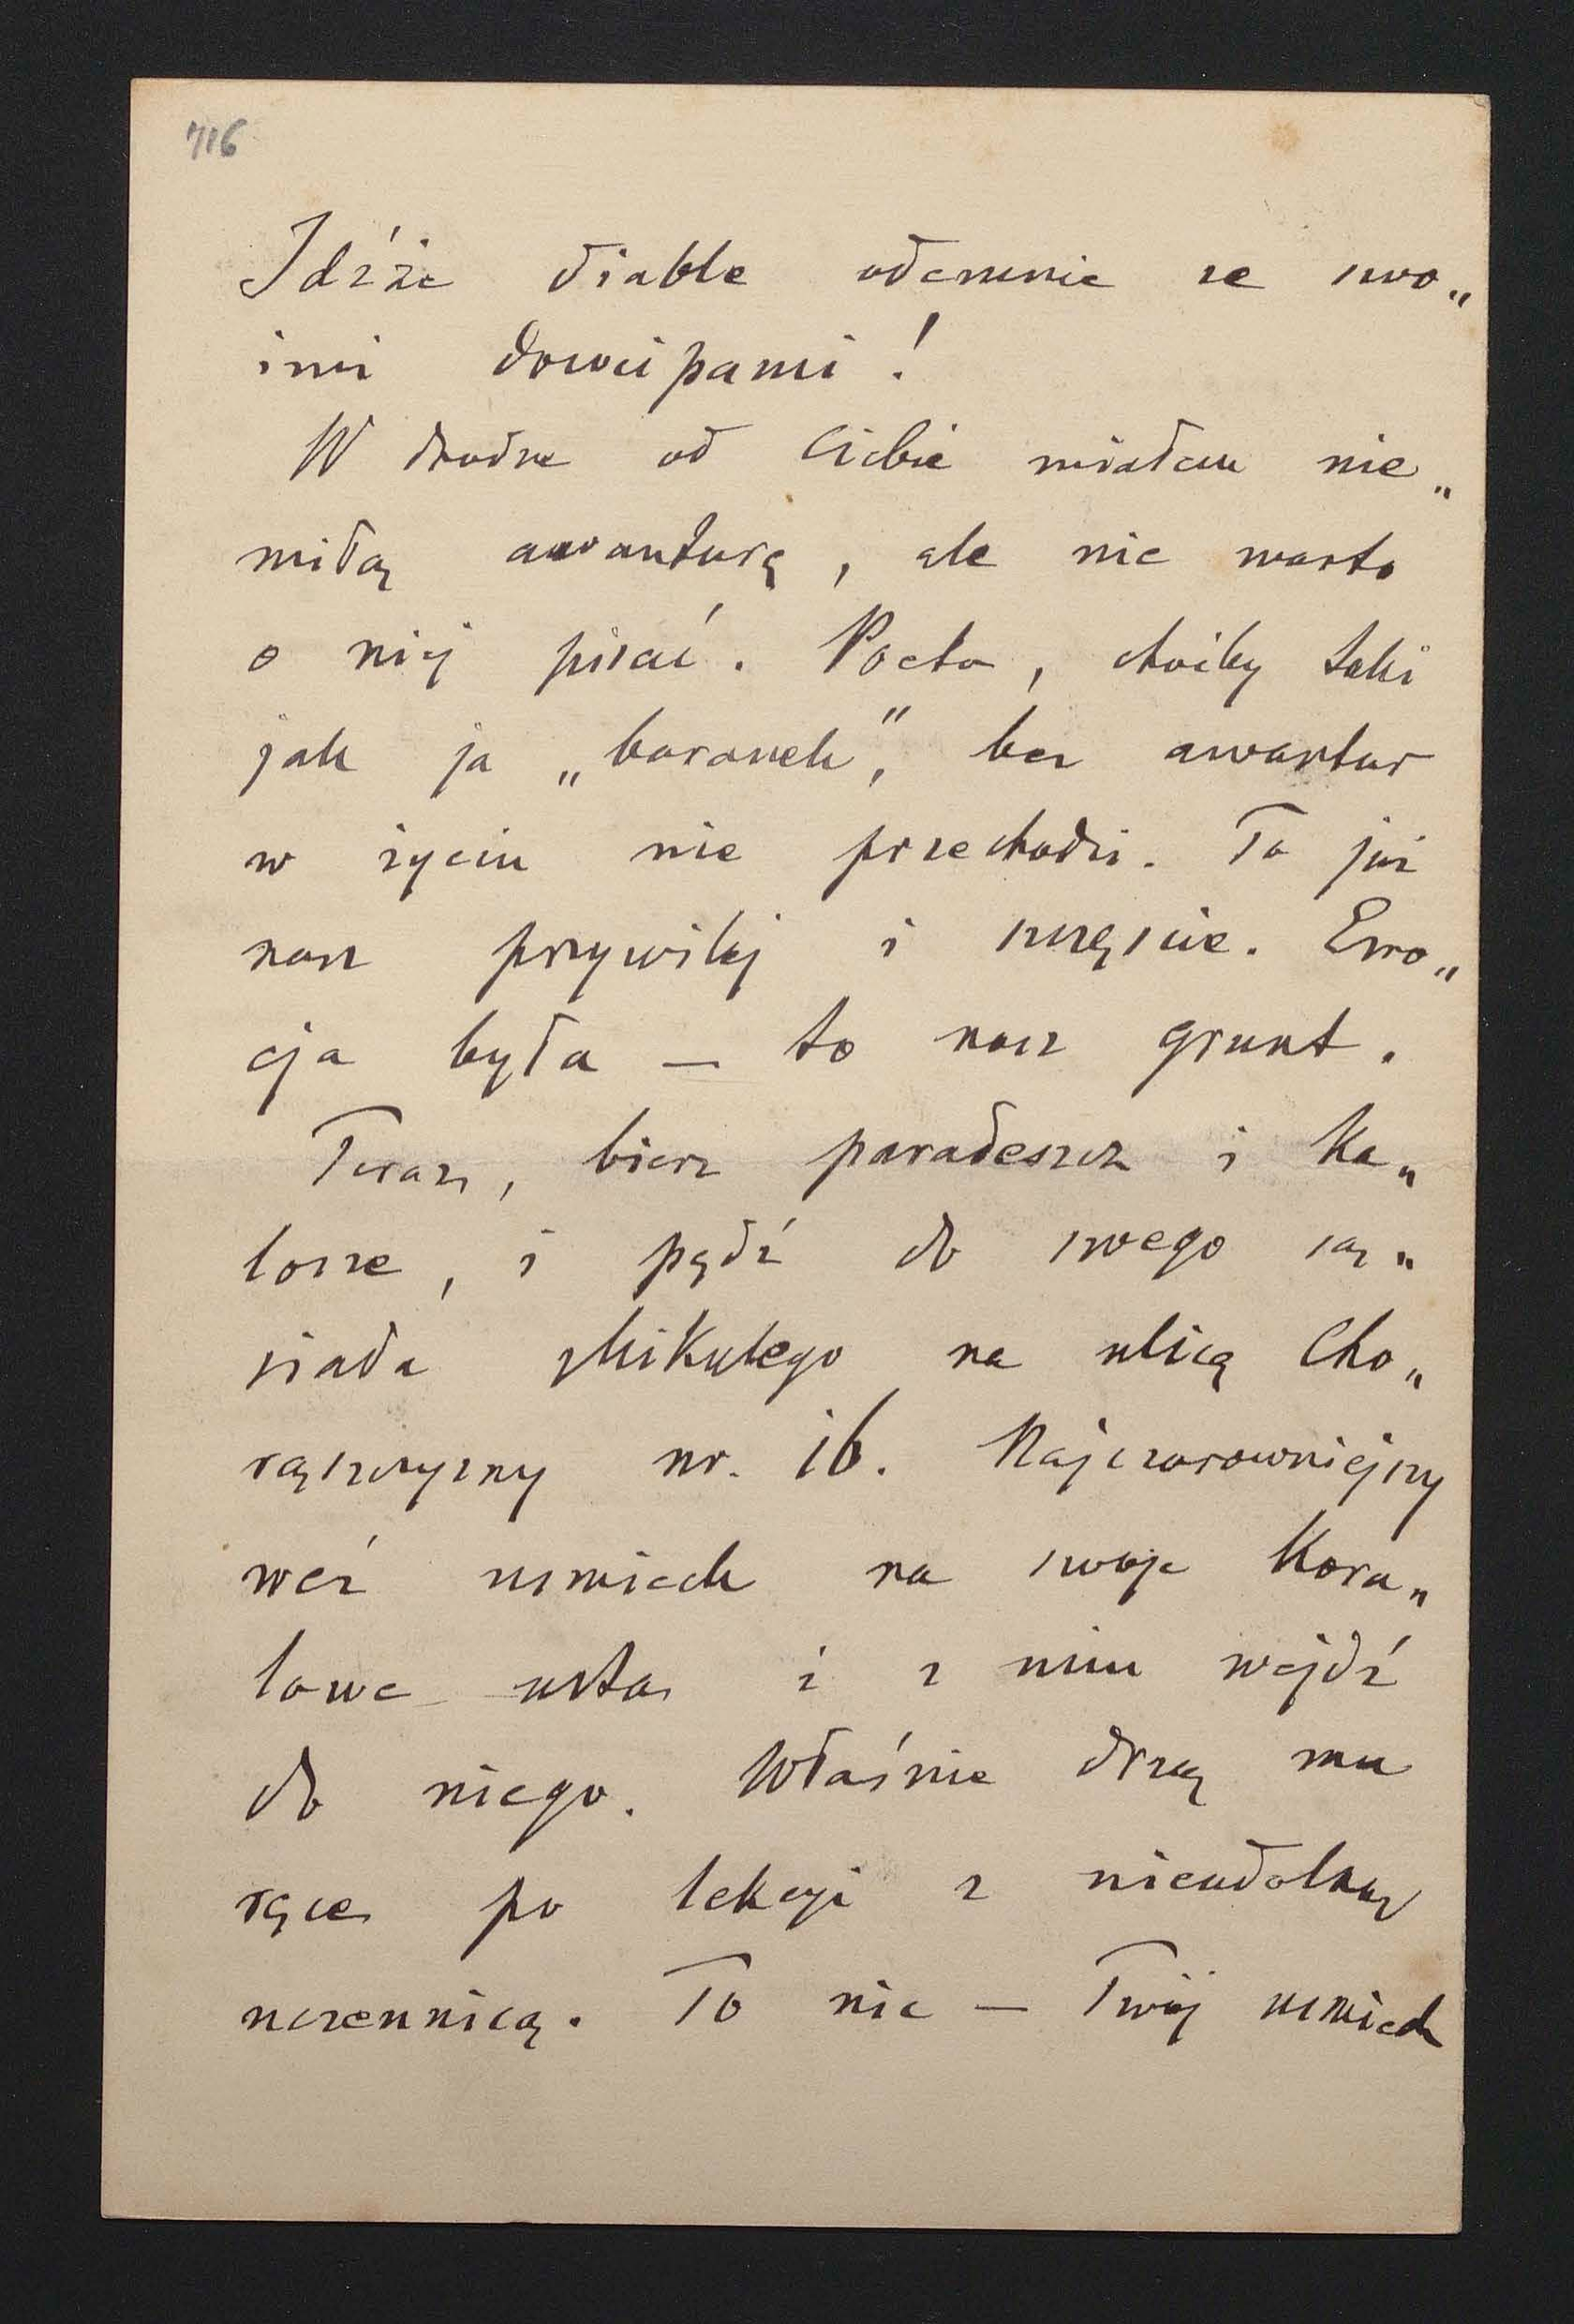 716
Idźże diable odemnie ze swo„
imi dowcipami!
W drodze od Ciebie miałem nie„
miłą awanturę, ale nie warto
o niej pisać. Poeta, choćby taki
jak ja „baranek”, bez awantur
w życiu nie przechodzi. To już
nasz przywilej i szczęście. Emo„
cja była — to nasz grunt.
Teraz, bierz paradeszcz i ka„
losze, i pędź do swego są„
siada Mikulego na ulicę Cho„
rąszczyzny nr. 16. Najczarowniejszy
weź usmiech na swoje kora„
lowe usta i z nim wejdź
do niego. Właśnie drżą mu
ręce po lekcyi z nieudolną
uczennicą. To nic — Twój usmiech